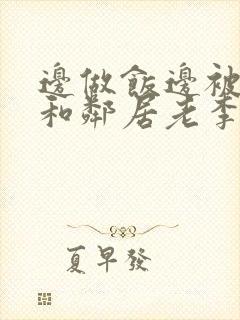 邊做飯邊被
和鄰居老李
夏早發